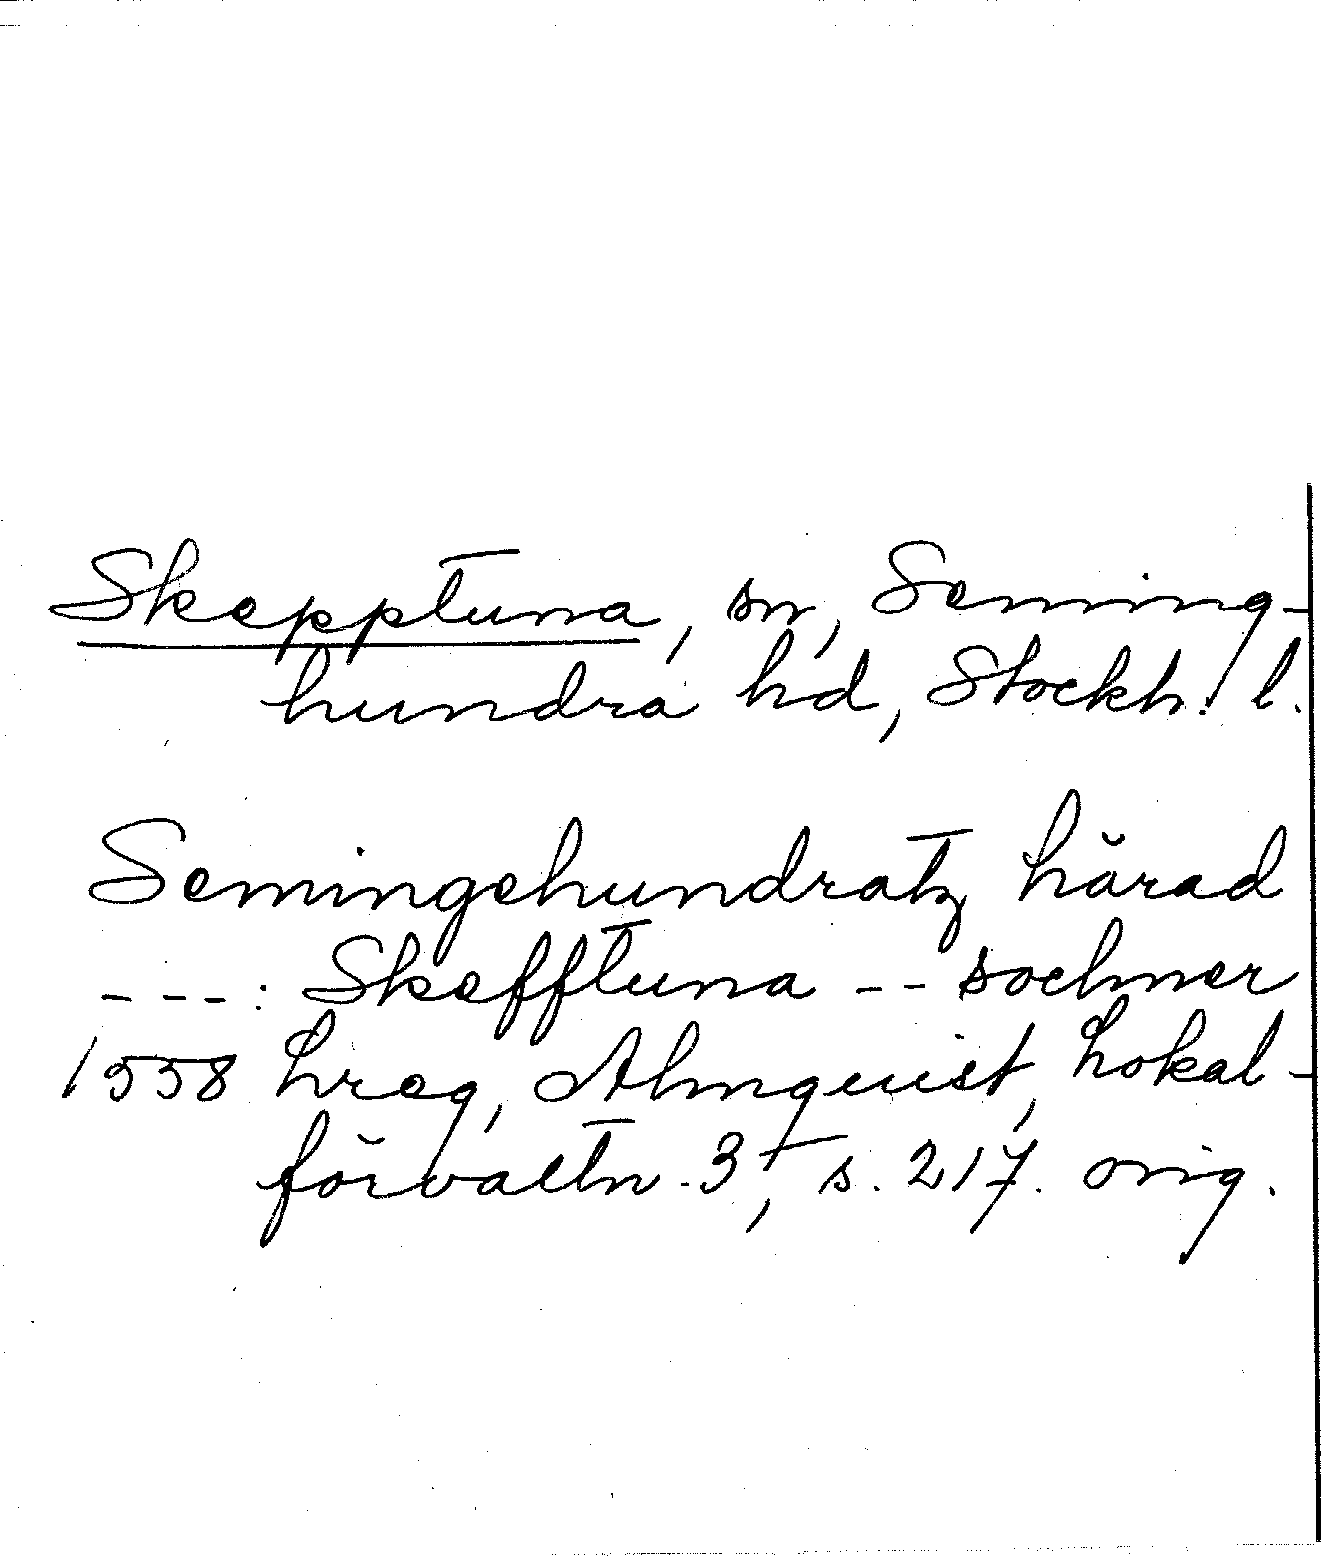 Skepptuna, sn, Seming-
hundra hd, Stockh. l.
Semingehundratz härad
--- : Skefftuna -- sochner
1558 Lreg, Almquist, Lokal-
förvaltn. 3, s. 217. orig.